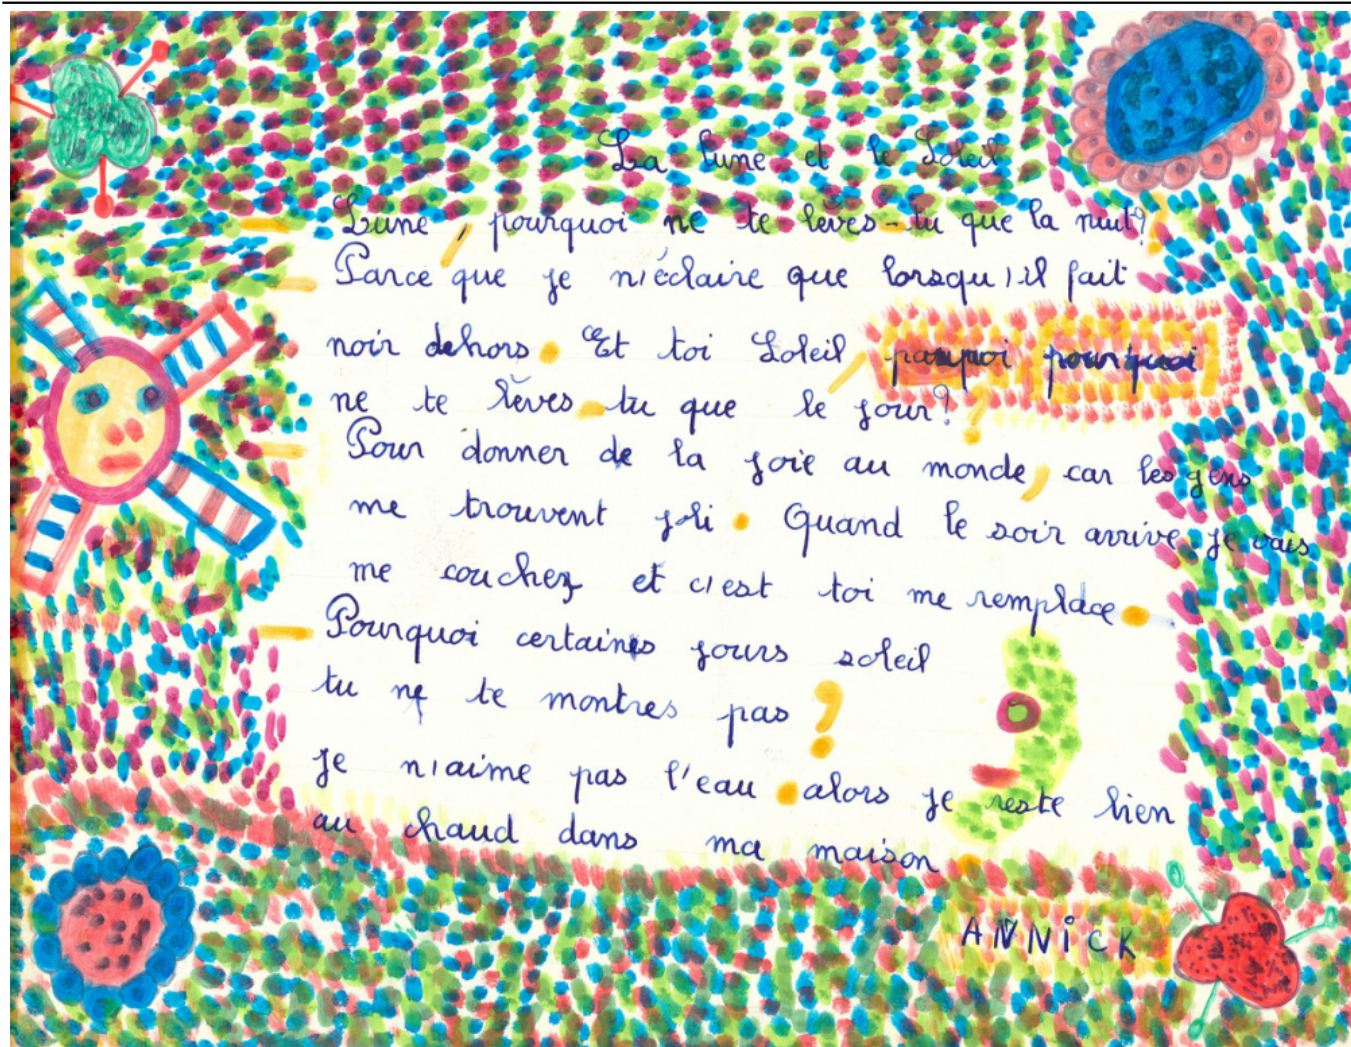 La lune et le Soleil
- Lune, pourquoi ne te lèves-tu que la nuit?
- Parce que je n'éclaire que lorsqu'il fait
noir dehors. Et toi Soleil, pourquoi
ne te lèves-tu que le jour?
- Pour donner de la joie au monde, car les gens
me trouvent joli. Quand le soir arrive, je vais
me coucher et c'est toi me remplace.
- Pourquoi certaines jours soleil
tu ne te montres pas ?
je n'aime pas l'eau. alors je reste bien
au chaud dans ma maison.
ANNiCK